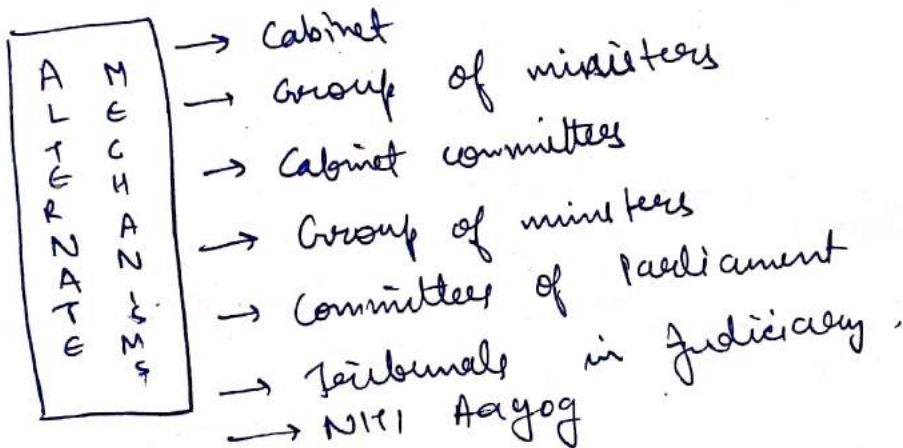 ALTERNATE
MECHANISMS
→ Cabinet
→ Group of ministers
→ Cabinet committees
→ Group of ministers
→ Committees of Parliament
→ Tribunals in Judiciary.
→ NITI Aayog